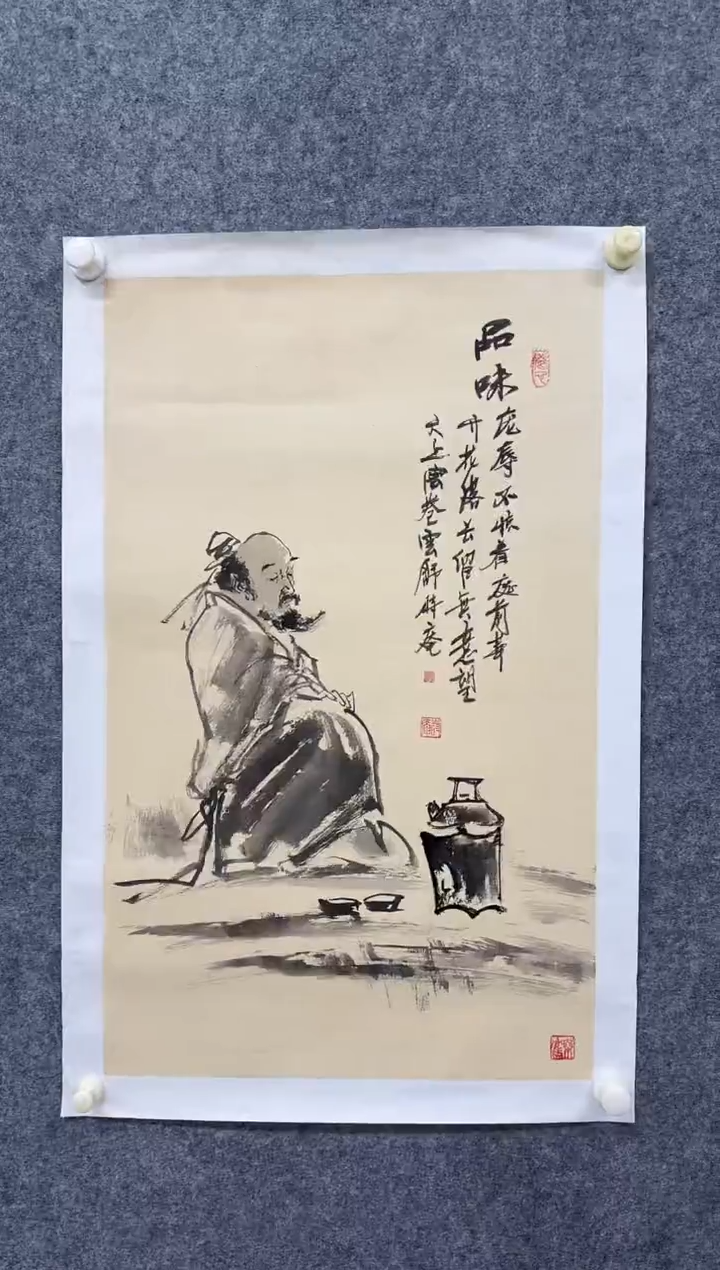 品味
宠辱不惊看庭前花
开花落去留無意望
天上雲卷雲舒竹庵